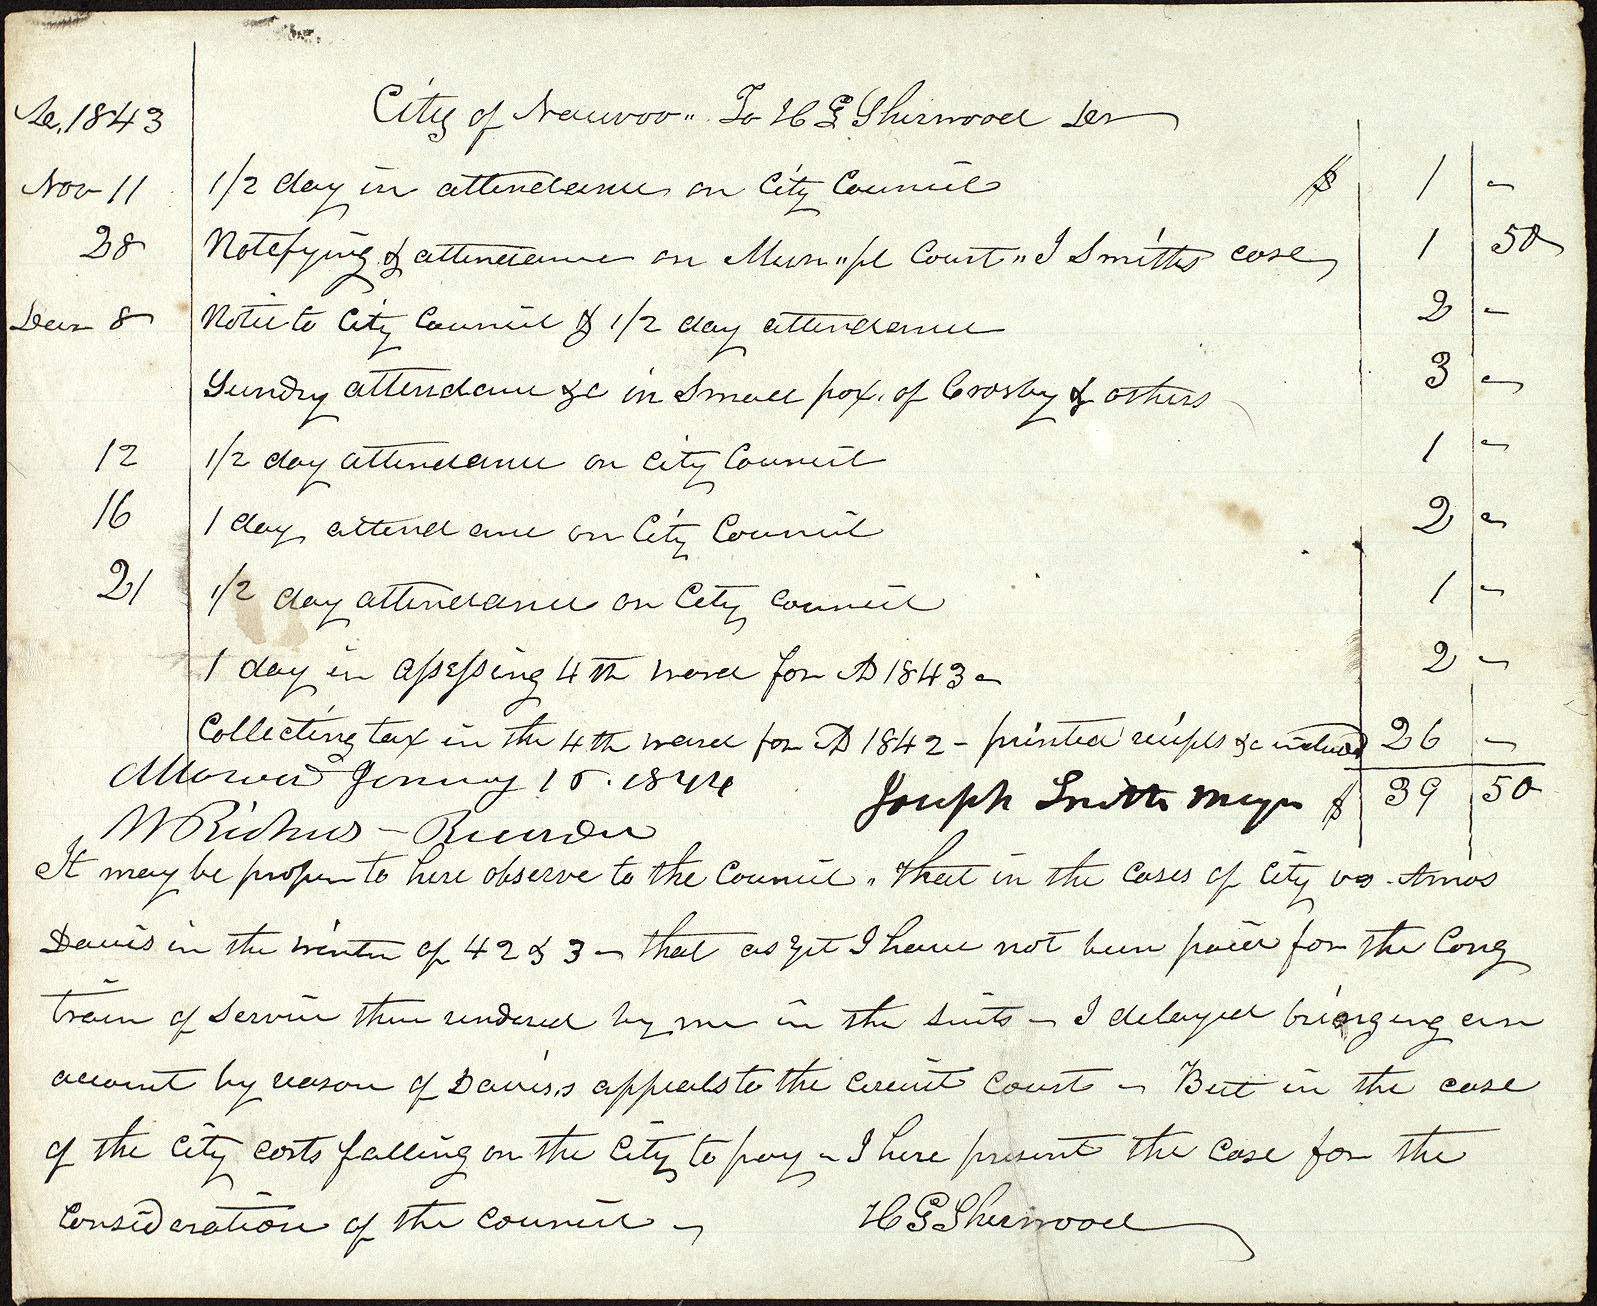 1843 City of Nauvoo " To H G Sherwood Dr
Nov 11 1/2 day in attendance on City Council $ 1 –
28 Notefying & attendance on Mun"pl Court " J Smiths case 1 50
Decr 8 Notice to City Council & 1/2 day attendance 2 –
Sundry attendance &c in Small pox. of Crosby & others 3 –
12 1/2 day attendance on City Council 1 –
16 1 day attendance on City Council 2 –
21 1/2 day attendance on City Council 1 –
1 day in assessing 4th ward for AD 1843 – 2 –
Collecting tax in the 4th ward for AD 1842 – printed reciepts &c included 26 –
Allowed January 15. 1844 Joseph Smith Mayor $ 39 50
W Richards – Recorder
It may be proper to here observe to the Council. that in the cases of City vs. Amos
Davis in the winter of 42 & 3 – that as yet I have not been paid for the long
train of Service then rendered by me in the suits – I delayed bringing an
account by reason of Davis,s appeals to the circuit court – But in the case
of the City costs falling on the City to pay – I here present the case for the
consideration of the council – H G Sherwood